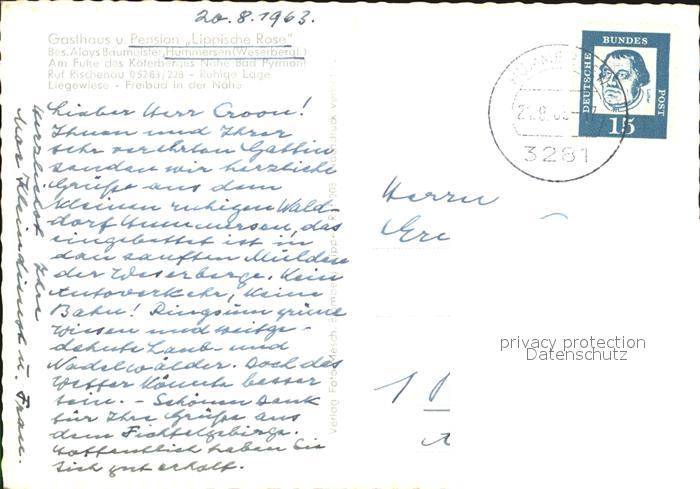 20.8.1963.
Gasthaus u. Pension „Lippische Rose"
Bes. Aloys Baumeister, Hummersen (Weserbergl.)
Am Fuße des Köterberges Nähe Bad Pyrmont
Ruf Rischenau 05283/228 - Ruhige Lage
Liegewiese - Freibad in der Nähe
Lieber Herr Croon!
Ihnen und Ihrer
sehr verehrten Gattin
senden wir herzliche
Grüße aus dem
kleinen ruhigen Wald-
dorf Hummersen, das
eingebettet ist in
den sanften Mulden
der Weserberge. Kein
Autoverkehr, keine
Bahn! Ringsum grüne
Wiesen und weitge-
dehnte Laub- und
Nadelwälder. Doch das
Wetter könnte besser
sein. - Schönen Dank
für Ihre Grüße aus
dem Fichtelgebirge.
Hoffentlich haben Sie
sich gut erholt.
Herzlichst Ihre
Max Kleindienst u. Frau.
Verlag Foto
DEUTSCHE BUNDES POST
15
3281
Herrn
privacy protection
Datenschutz